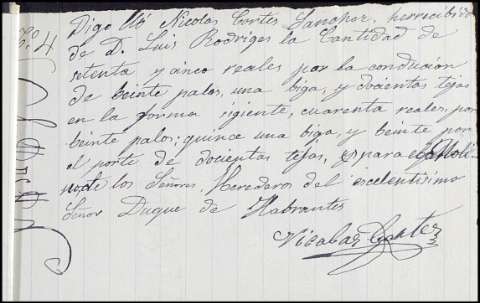 Digo Yo Nicolas Cortes Sanoper, herrecibido
de D. Luis Rodriges la Cantidad de
setenta y cinco reales por la conducion
de beinte palos, una biga, y docientas tejas
en la forma sigiente, cuarenta reales, por
beinte palos; quince una biga, y beinte por
el porte de docientas tejas, para el Moli
no de los Señores Herederos del escelentisimo
Señor Duque de Habrantes
Nicolas Cortes